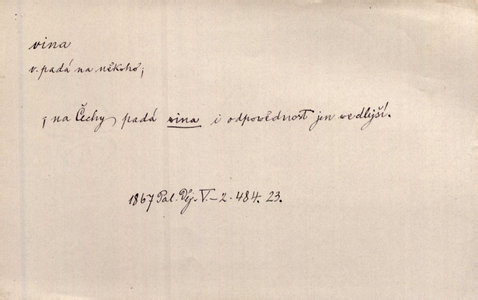 vina
v. padá na někoho;
„na Čechy padá vina i odpovědnost jen vedlejší.
1867 Pal. Děj. V-2. 484. 23.